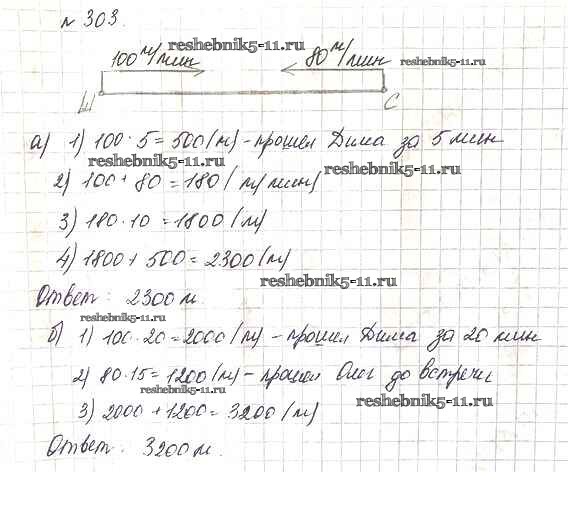 № 303.
reshebnik5-11.ru
100 м/мин 80 м/мин reshebnik5-11.ru
Ш С
а) 1) 100 · 5 = 500 (м) - прошел Дима за 5 мин
reshebnik5-11.ru reshebnik5-11.ru
2) 100 + 80 = 180 (м/мин)
3) 180 · 10 = 1800 (м)
4) 1800 + 500 = 2300 (м)
reshebnik5-11.ru
Ответ: 2300 м.
reshebnik5-11.ru
б) 1) 100 · 20 = 2000 (м) - прошел Дима за 20 мин
2) 80 · 15 = 1200 (м) - прошел Олег до встречи
reshebnik5-11.ru reshebnik5-11.ru
3) 2000 + 1200 = 3200 (м)
Ответ: 3200 м.